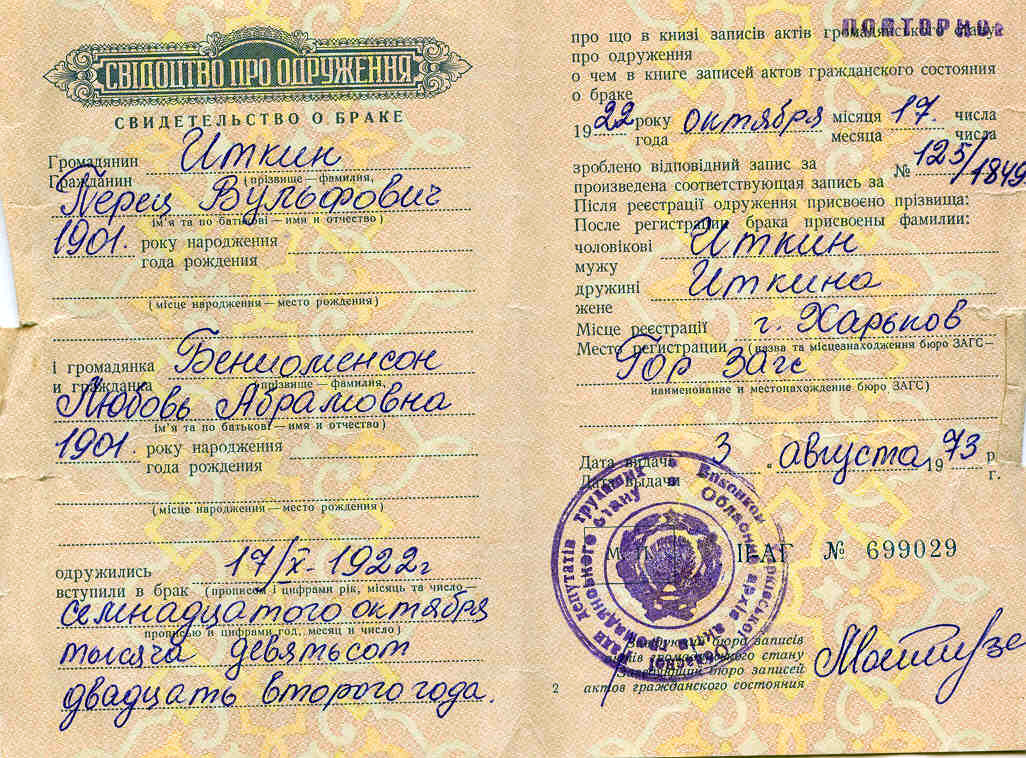 СВІДОЦТВО ПРО ОДРУЖЕННЯ
СВИДЕТЕЛЬСТВО О БРАКЕ
Громадянин Иткин
Гражданин (прізвище — фамилия,
Перец Вульфович
ім'я та по батькові — имя и отчество)
1901. року народження
года рождения
(місце народження — место рождения)
і громадянка Бенциоменсон
и гражданка (прізвище — фамилия,
Любовь Абрамовна
ім'я та по батькові — имя и отчество)
1901. року народження
года рождения
(місце народження — место рождения)
одружились 17/X-1922г
вступили в брак (прописом і цифрами рік, місяць та число —
семнадцатого октября
прописью и цифрами год, месяц и число)
тысяча девятьсот
двадцать второго года.
ПОВТОРНО
про що в книзі записів актів громадянського стану
про одруження
о чем в книге записей актов гражданского состояния
о браке
1922 року октября місяця 17. числа
года месяца числа
зроблено відповідний запис за № 125/1849
произведена соответствующая запись за
Після реєстрації одруження присвоєно прізвища:
После регистрации брака присвоены фамилии:
чоловікові Иткин
мужу
дружині Иткина
жене
Місце реєстрації г. Харьков
Место регистрации (назва та місцезнаходження бюро ЗАГС —
Гор Загс
наименование и местонахождение бюро ЗАГС)
Дата видачі 3 " августа 1973 р.
Дата выдачи г.
ІІ-БАГ № 699029
бюро записів
актів громадянського стану
Заведующий бюро записей
актов гражданского состояния
2